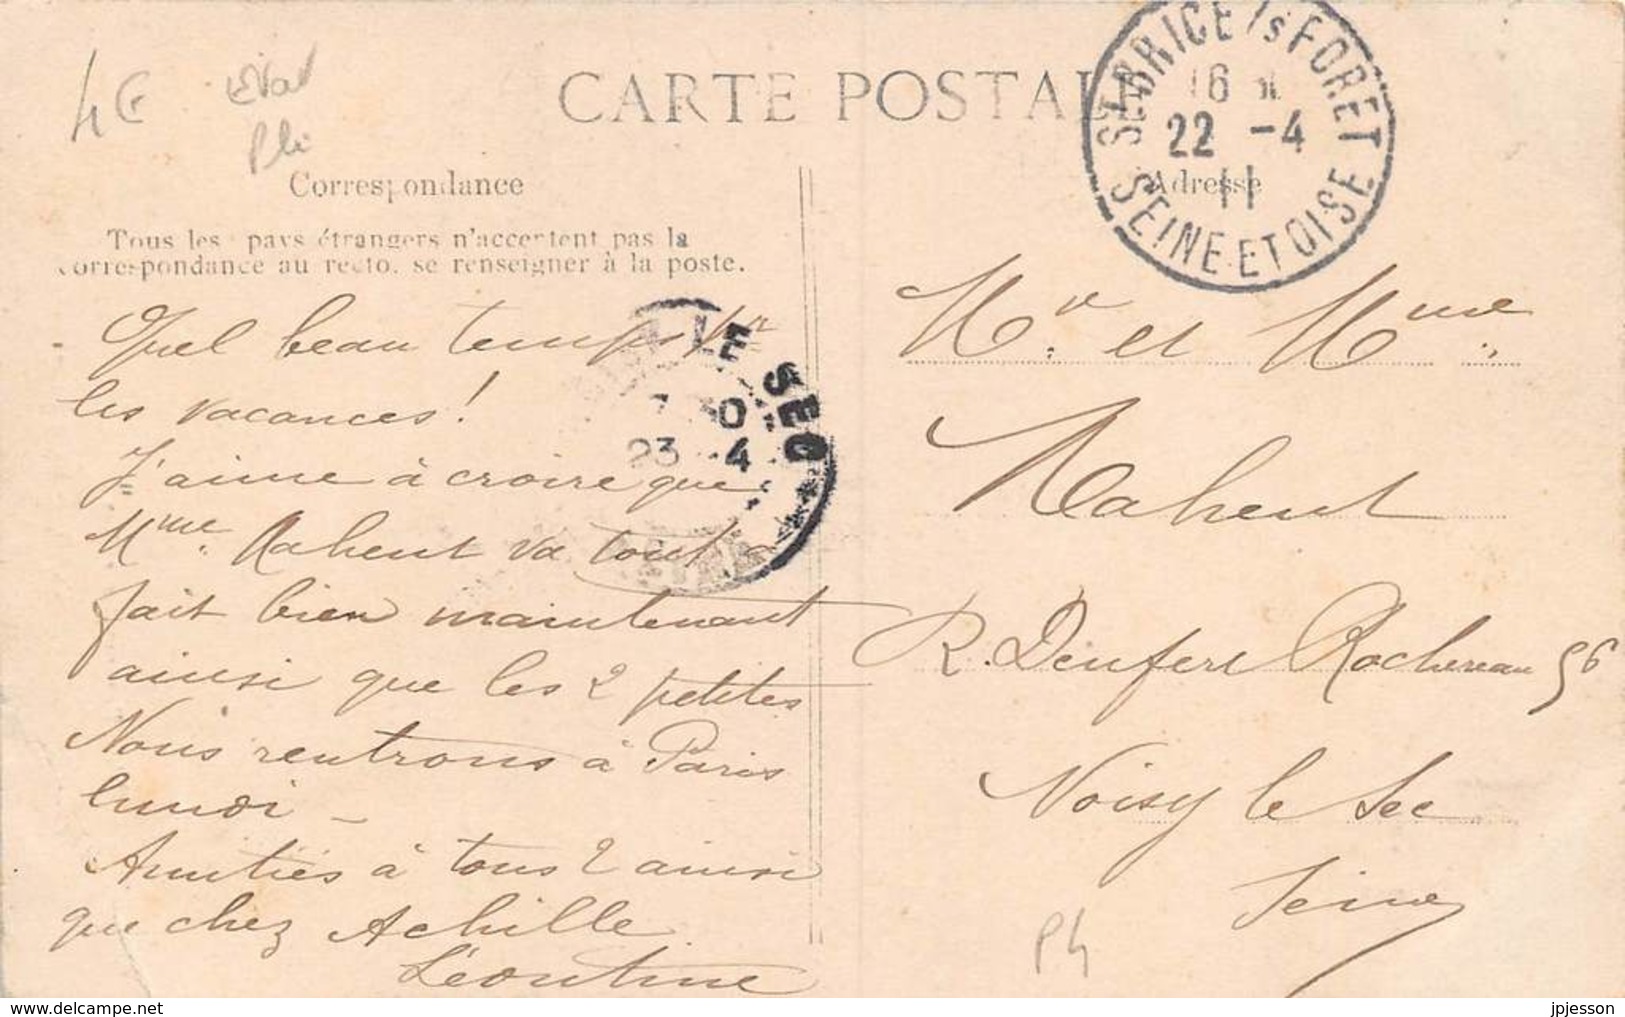 4 €
état
pli
CARTE POSTALE
Correspondance
Tous les pays étrangers n'acceptent pas la
correspondance au recto, se renseigner à la poste.
Quel beau temps pr
les vacances!
J'aime à croire que
Mme Rahent va tout à
fait bien maintenant
ainsi que les 2 petites
Nous rentrons à Paris
lundi -
Amitiés à tous 2 ainsi
que chez Achille
Léontine
LE SEC
23 -4
ST BRICE Ss FORET
16
22 -4
11
SEINE ET OISE
Adresse
Mr. et Mme
Rahent
R. Denfert Rochereau 56
Noisy le Sec
Seine
P4
delcampe.net
jpjesson